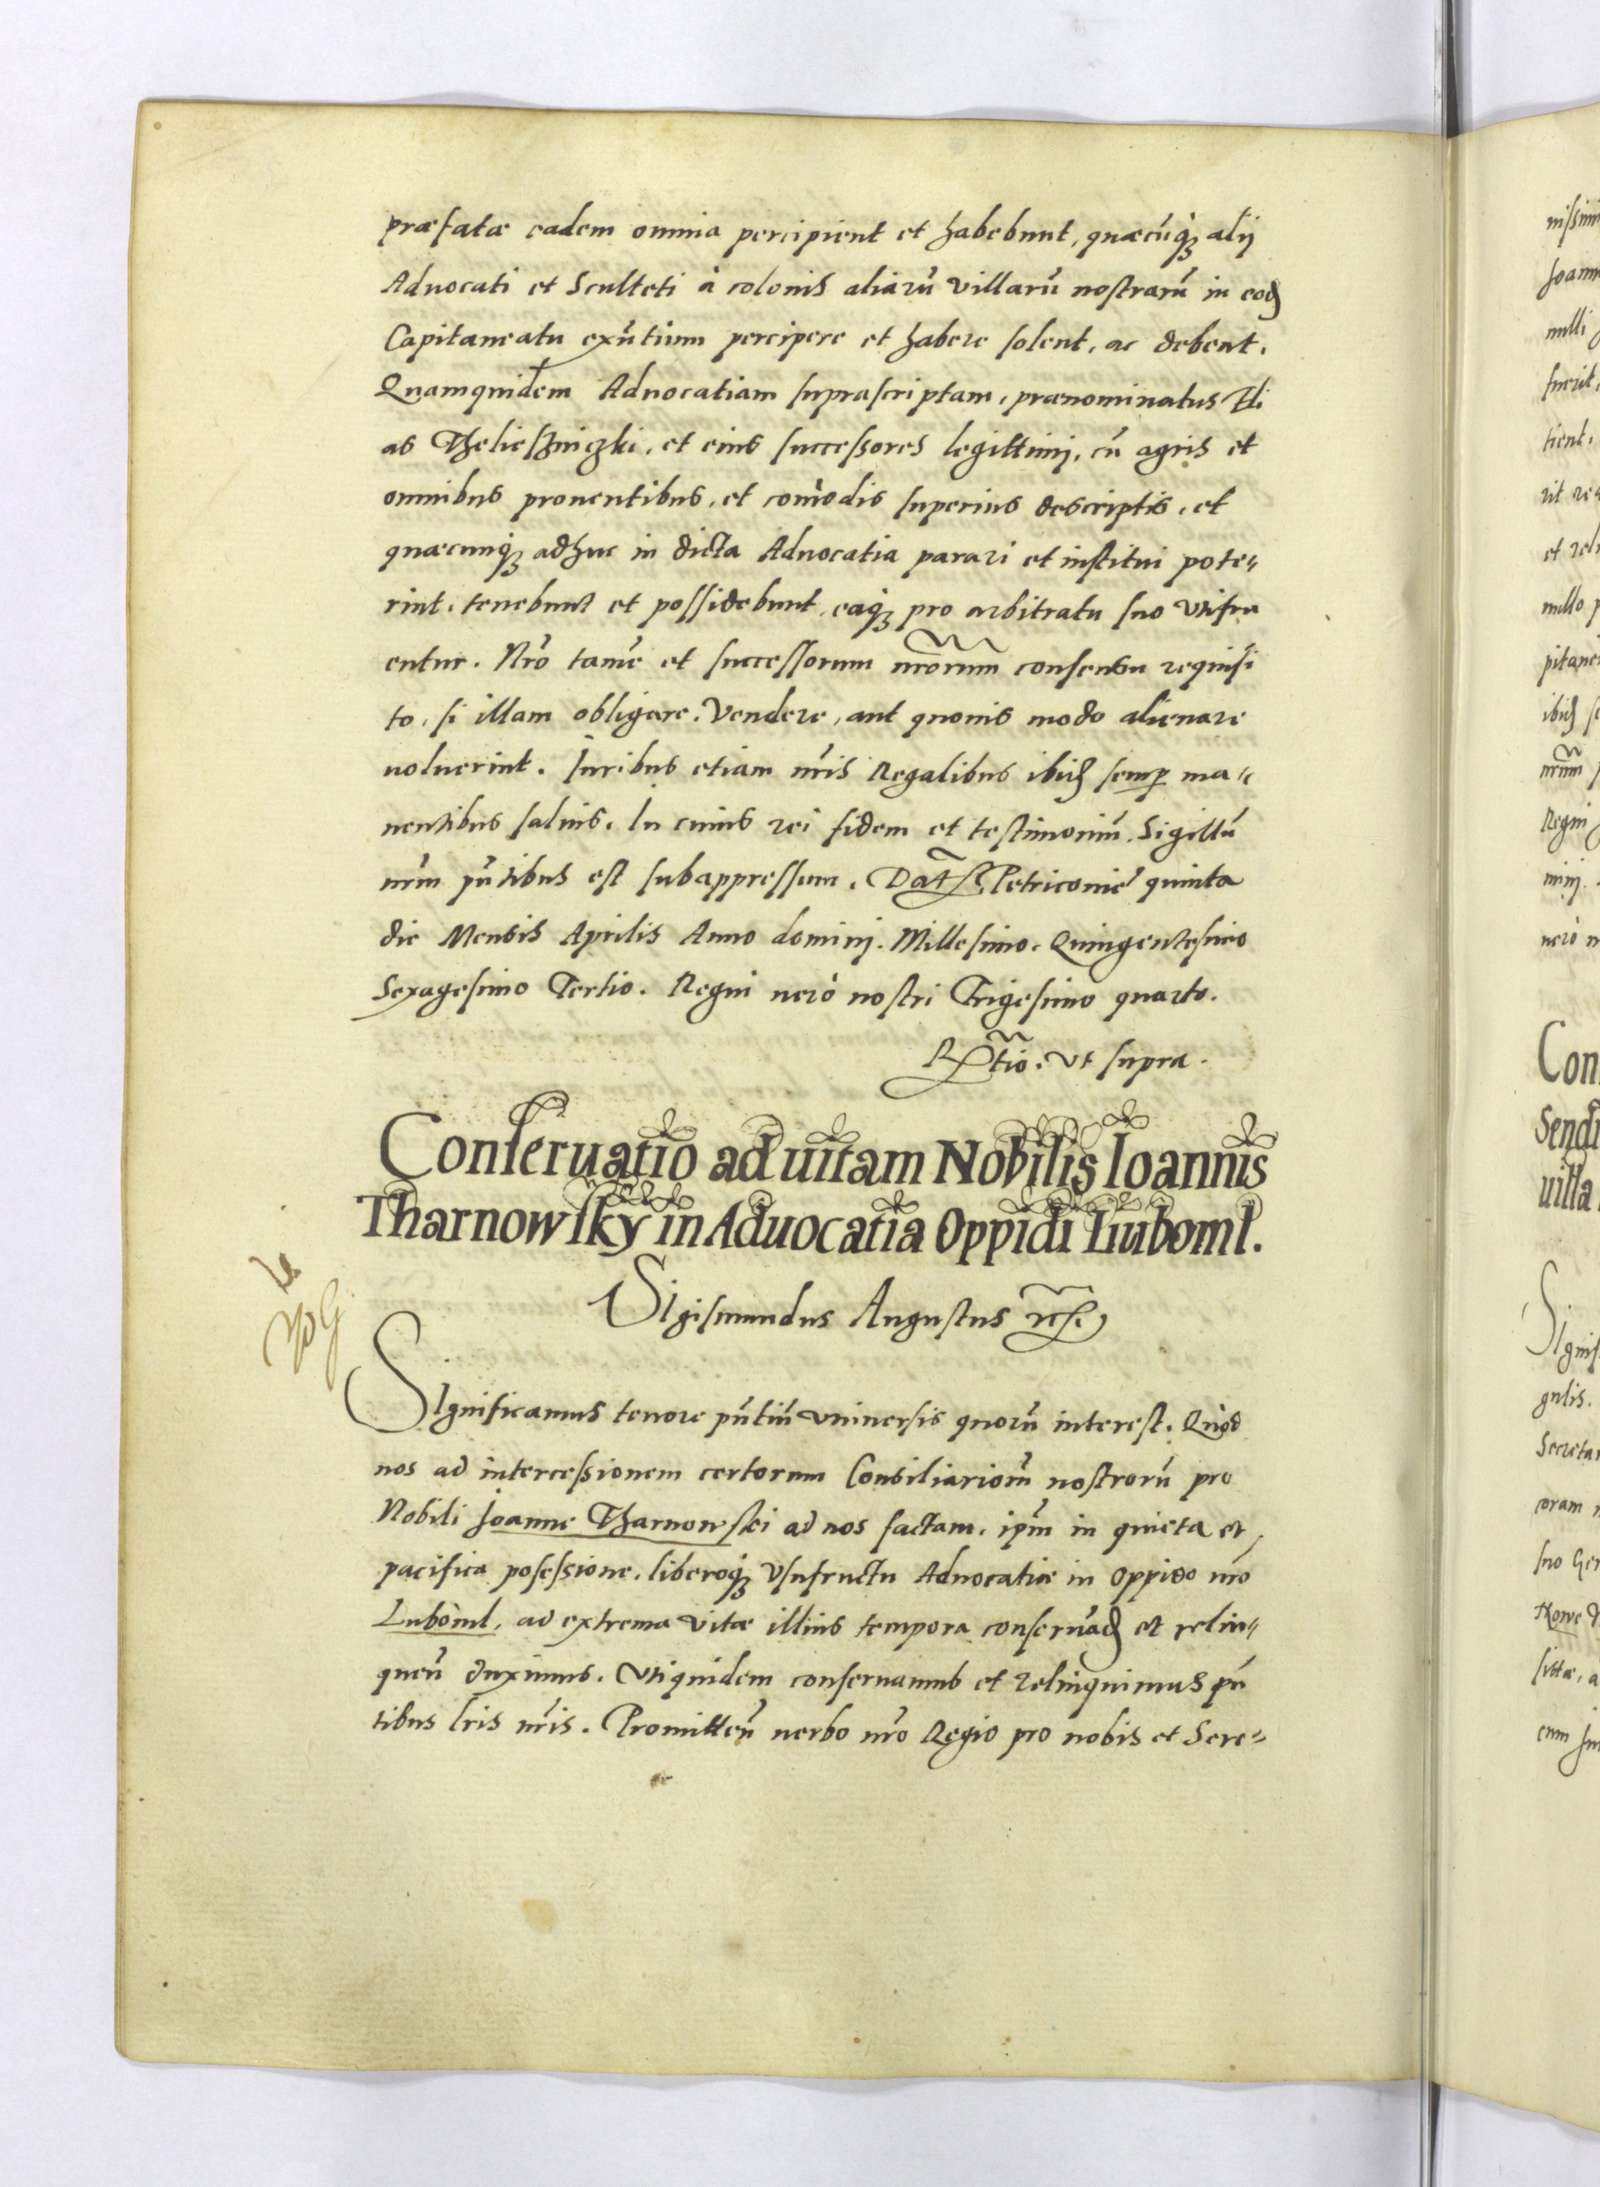 præfatæ eadem omnia percipient et habebunt, quæcūq̃ȝ alij
Aduocati et Sculteti à colonis aliarū villarū nostrarū in eod̃
Capitaneatu exñtium percipere et habere solent, ac debent.
Quamquidem Aduocatiam suprascriptam, prænominatus Hi
as Thelieszniczki, et eius successores legittimi, cū agris et
omnibus prouentibus, et com̃odis superius descriptis, et
quæcunq̃ȝ adhuc in dicta Aduocatia parari et institui pote-
rint, tenebunt et possidebunt, eaq̃ȝ pro arbitratu suo vtifru
entur. Nr̃o tamẽ et successorum nr̃orum consensu requisi
to, si illam obligare, vendere, aut quouis modo alienare
uoluerint. Iuribus etiam nr̃is Regalibus ibid̃ semp ma-
nentibus saluis. In cuius rei fidem et testimoniũ, Sigillũ
nr̃m pñtibus est subappressum. Dat̃ Petricouiẽ quinta
die Mensis Aprilis Anno domini. Millesimo. Quingentesimo
Sexagesimo Tertio. Regni uerò nostri Trigesimo quarto.
Rtĩo. vt supra.
Conseruatio ad uitam Nobilis Ioannis
Tharnowsky in Aduocatia Oppidi Liuboml.
Sigismundus Augustus
Significamus tenore pñtiũ vniuersis quorũ interest. Quòd
nos ad intercessionem certorum Consiliariorũ nostrorũ pro
Nobili Joanne Tharnowski ad nos factam, ip̃m in quieta et
pacifica posessione, liberoq̃ȝ vsufructu Aduocatiæ in oppido nr̃o
Luboml, ad extrema vitæ illius tempora conseruãd et relin-
queñ duximus. Vtiquidem conseruamus et relinquimus pñ
tibus lr̃is nr̃is. Promitteñ uerbo nr̃o Regio pro nobis et Sere-